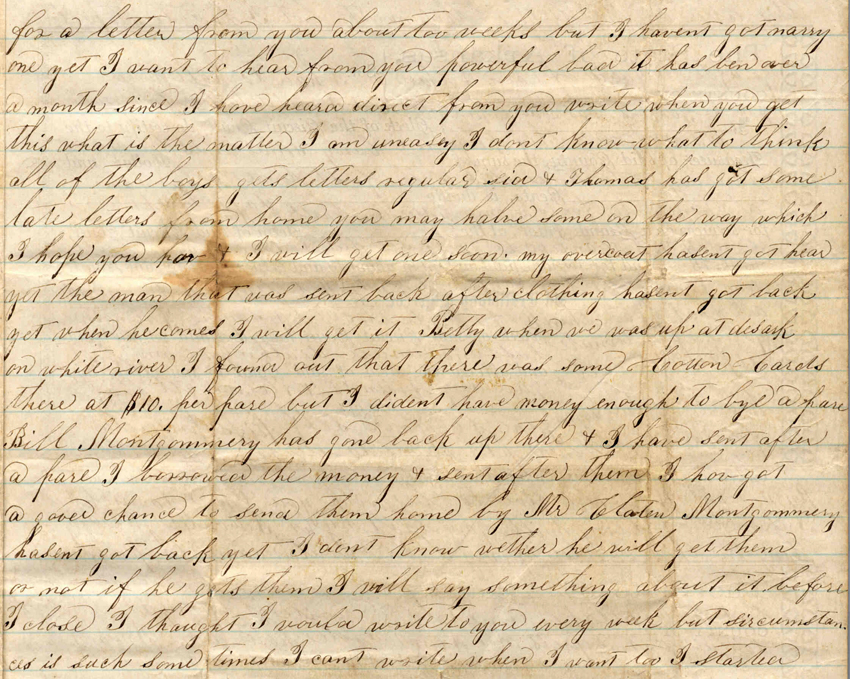 for a letter from you about too weeks but I havent got narry
one yet I want to hear from you powerful bad it has ben over
a month since I have heard direct from you write when you get
this what is the matter I am uneasy I dont know what to think
all of the boys gets letters regular sid & Thomas has got some
late letters from home you may halve some on the way which
I hope you hav & I will get one soon. my overcoat hasent got hear
yet the man that was sent back after clothing hasent got back
yet when he comes I will get it Betty when we was up at desark
on white river I found out that there was some Cotton Cards
there at $10. per pare but I dident have money enough to bye a pare
Bill Montgommery has gone back up there & I have sent after
a pare I borrowed the money & sent after them I hav got
a good chance to send them home by Mr Claten Montgommery
hasent got back yet I dont know wether he will get them
or not if he gets them I will say something about it before
I close I thought I would write to you every week but sircumstan-
ces is such some times I cant write when I want too I started